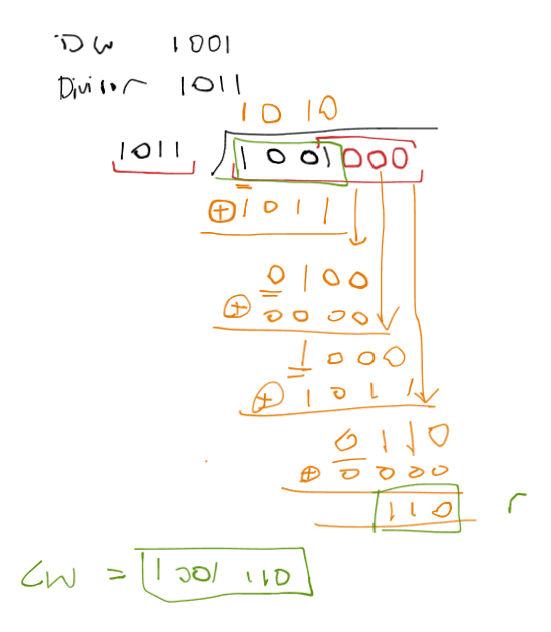 DW 1001
Divisor 1011
1010
1011 1001000
⊕1011
0100
⊕0000
1000
⊕1011
0110
⊕0000
110 r
CW = 1001 110